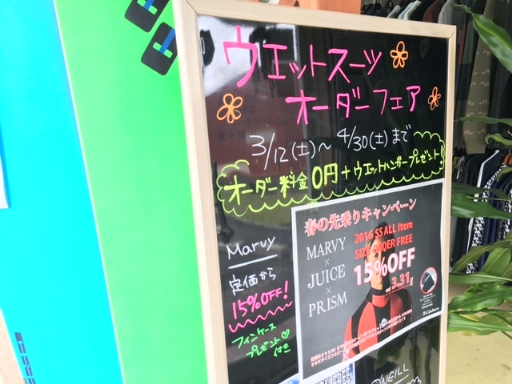 ウエットスーツ
オーダーフェア
3/12(土)～4/30(土)まで
オーダー料金0円+ウエットハンガープレゼント!
Marvy
定価から
15%OFF!
フィンケース
プレゼント♡
付き
春の先乗りキャンペーン
2016 SS ALL Item
MARVY
×
JUICE
×
PRISM
15%OFF
3.31
O'NEILL